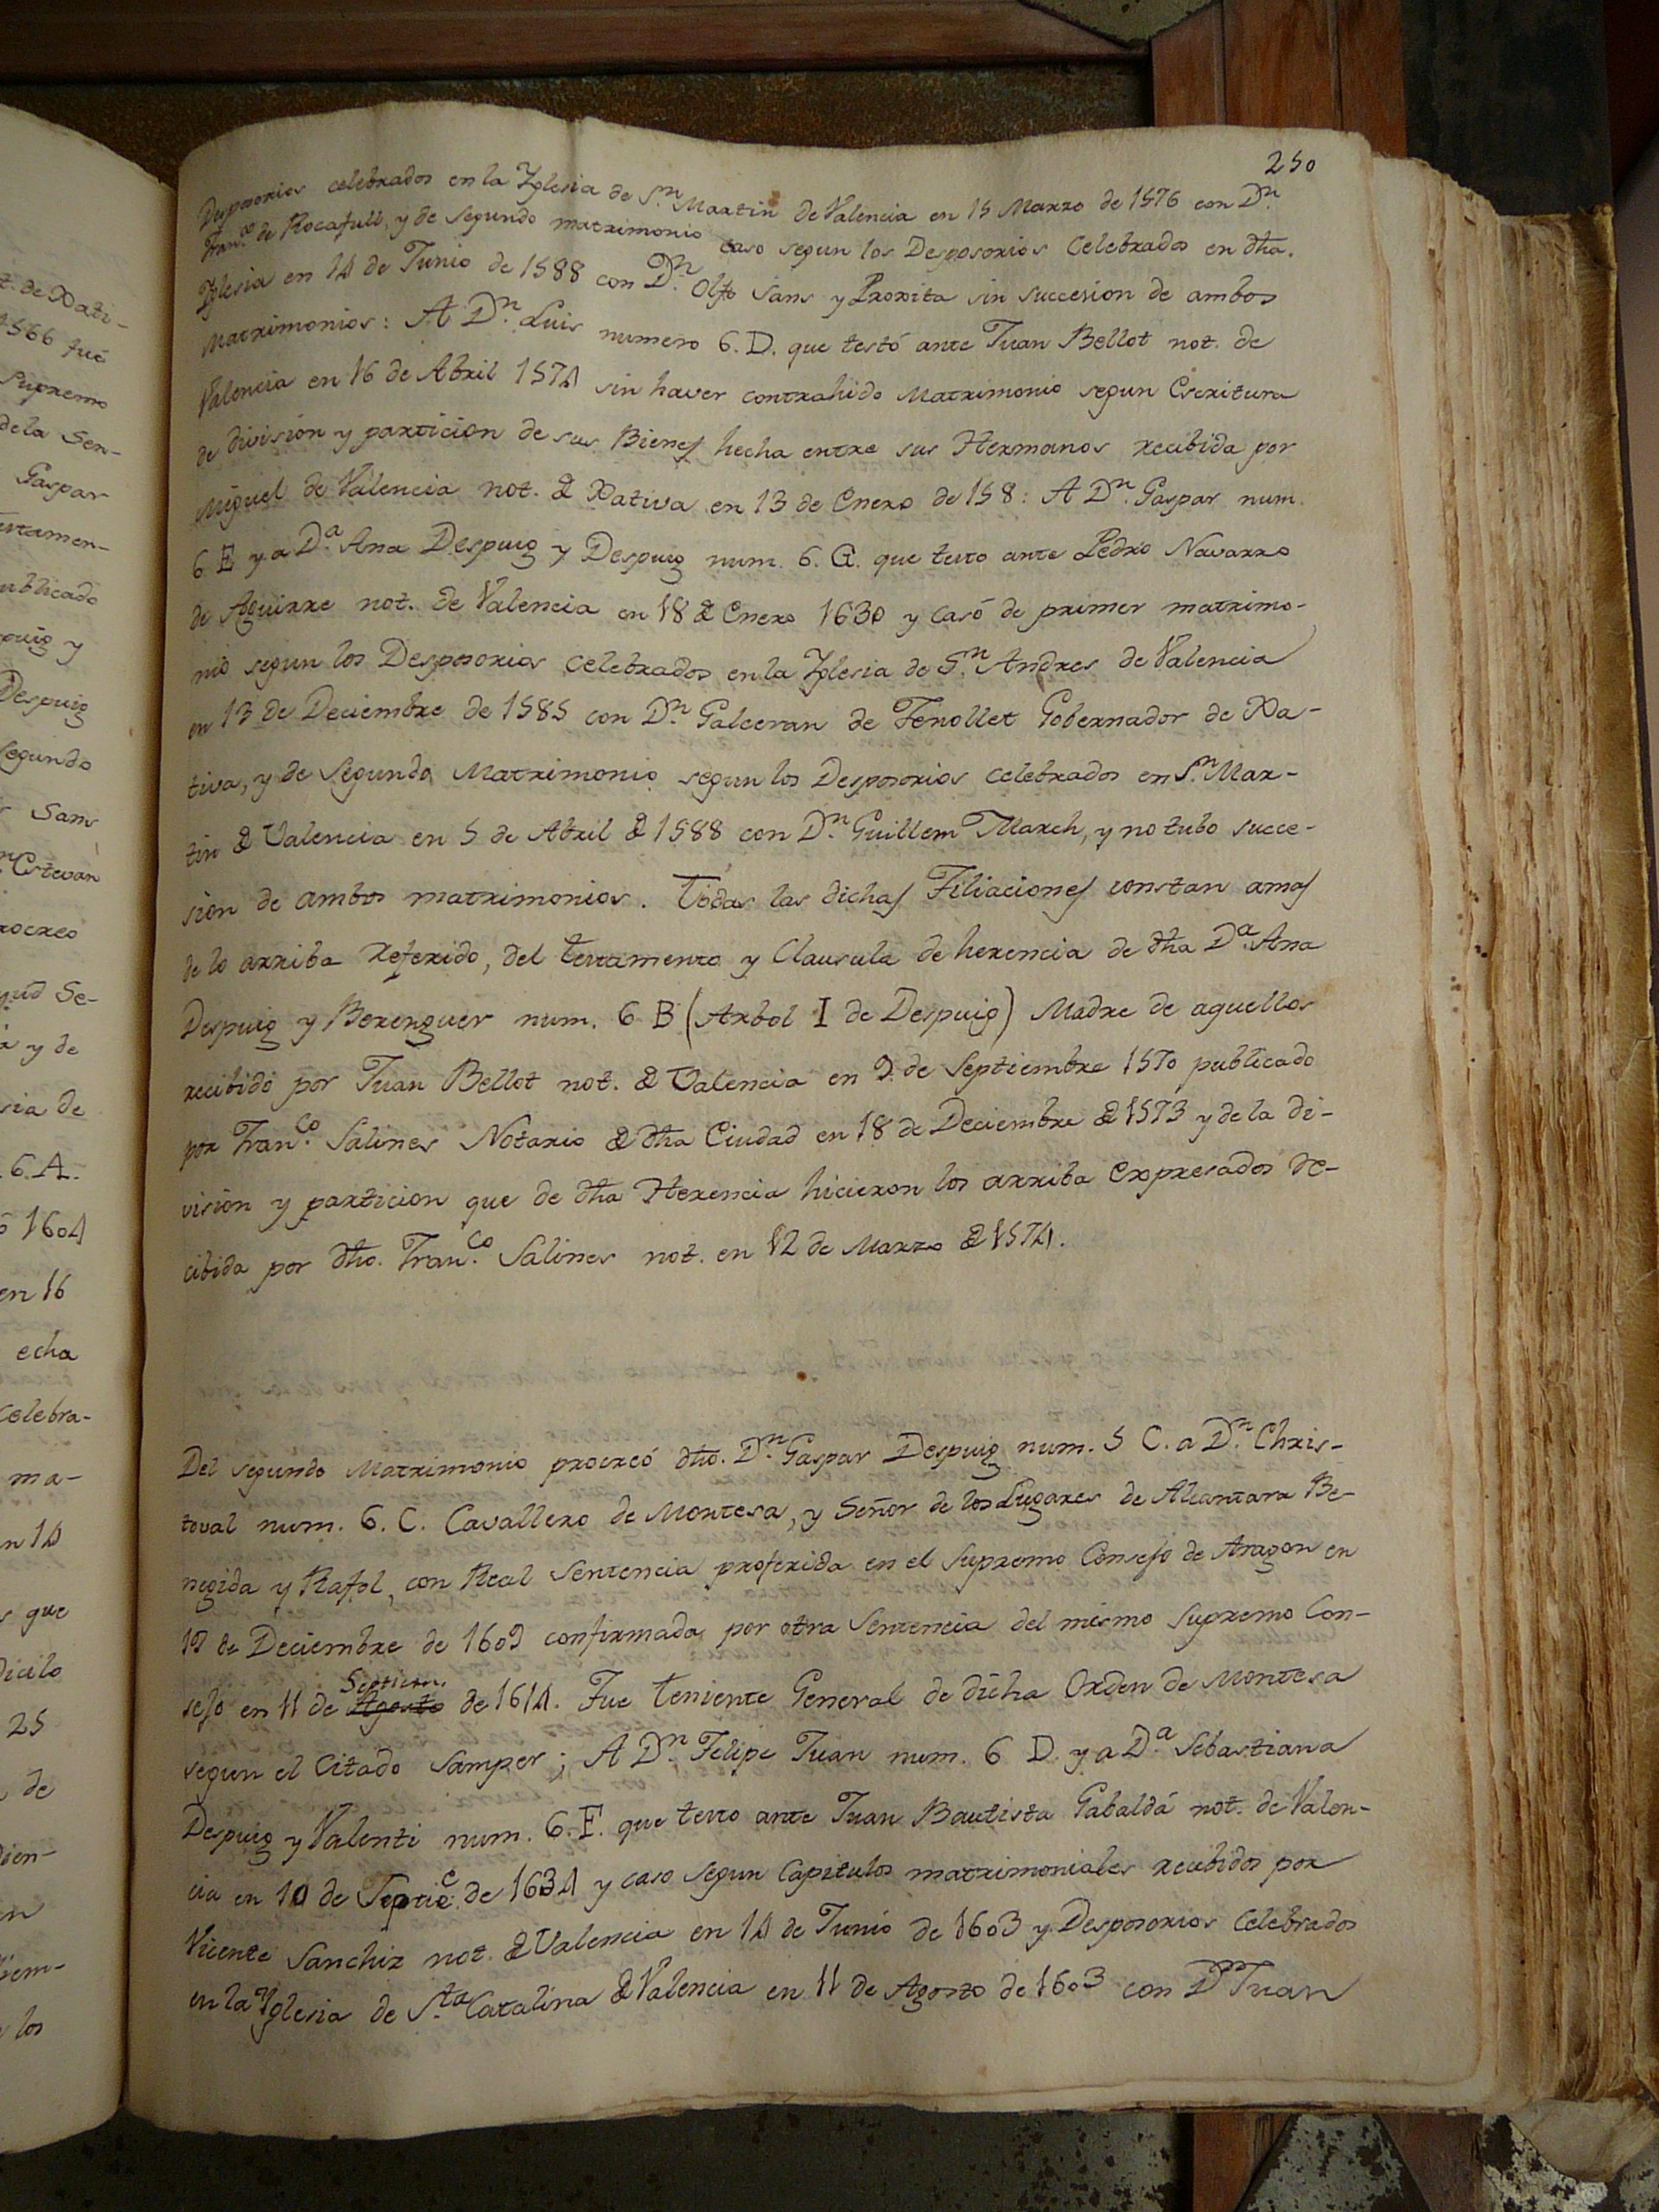 t. de Xati-
1566 fué
Supremo
de la Sen-
Gaspar
ublicado
puig y
Despuig
Segundo
Sans
Estevan
rocreo
y de
ria de
6. A.
1604
en 16
echa
Celebra-
ma-
n 14
que
dicilo
25
de
los
250
Desposorios celebrados en la Yglesia de Sn. Martin de Valencia en 15 Marzo de 1576 con Dn.
Franco. de Rocafull, y de segundo matrimonio caso segun los Desposorios Celebrados en dha.
Yglesia en 14 de Junio de 1588 con Dn. Olfo Sans y Proxita sin succesion de ambos
Matrimonios: A Dn. Luis numero 6. D. que testó ante Juan Bellot not. de
Valencia en 16 de Abril 1574 sin haver contrahido Matrimonio segun Escritura
de division y particion de sus Bienes hecha entre sus Hermanos recibida por
Miguel de Valencia not. de Xativa en 13 de Enero de 158: A Dn. Gaspar num.
6 E y a Da. Ana Despuig y Despuig num. 6. G. que testo ante Pedro Navarro
de Aguirre not. de Valencia en 18 de Enero 1630 y Casó de primer matrimo-
nio segun los Desposorios Celebrados en la Yglesia de Sn. Andres de Valencia
en 13 de Deciembre de 1585 con Dn. Galceran de Fenollet Gobernador de Xa-
tiva, y de Segundo Matrimonio segun los Desposorios celebrados en Sn. Mar-
tin de Valencia en 5 de Abril de 1588 con Dn. Guillem March, y no tubo succe-
sion de ambos matrimonios. Todas las dichas Filiaciones constan amas
de lo arriba Referido, del testamento y Clausula de herencia de dha Da. Ana
Despuig y Berenguer num. 6 B (Arbol I de Despuig) Madre de aquellos
recibido por Juan Bellot not. de Valencia en 9 de Septiembre 1570 publicado
por Franco. Salines Notario de dha Ciudad en 18 de Deciembre de 1573 y de la di-
vision y particion que de dha Herencia hicieron los arriba Expresados re-
cibida por dho. Franco. Salines not. en 12 de Marzo de 1574.
Del segundo Matrimonio procreó dho. Dn. Gaspar Despuig num. 5 C. a Dn. Chris-
toval num. 6. C. Cavallero de Montesa, y Señor de los Lugares de Alcantara Be-
negida y Rafol, con Real Sentencia proferida en el Supremo Consejo de Aragon en
19 de Deciembre de 1609 confirmada por otra Sentencia del mismo Supremo Con-
sejo en 11 de Agosto Septiem. de 1614. Fue Teniente General de dicha Orden de Montesa
segun el Citado Samper; A Dn. Felipe Juan num. 6 D. y a Da. Sebastiana
Despuig y Valenti num. 6. F. que testo ante Juan Bautista Gabaldá not. de Valen-
cia en 10 de Septie. de 1634 y caso segun Capitulos matrimoniales recibidos por
Vicente Sanchiz not. de Valencia en 14 de Junio de 1603 y Desposorios Celebrados
en la Yglesia de Sta. Catalina de Valencia en 11 de Agosto de 1603 con Dn Juan